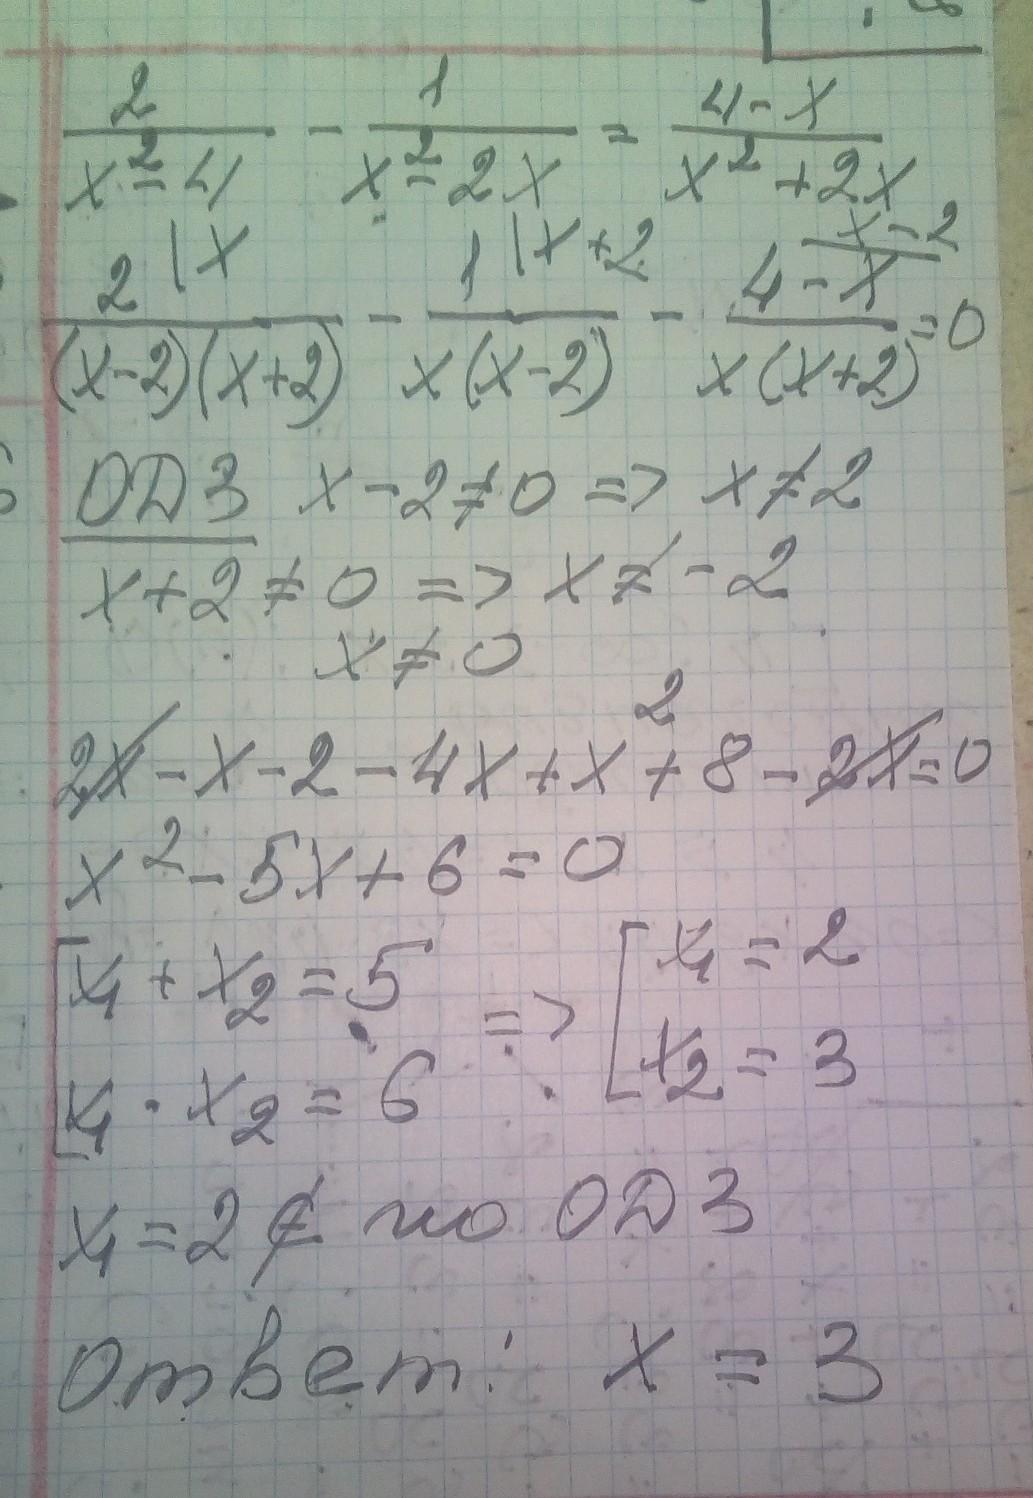 2/(x²-4) - 1/(x²-2x) = (4-x)/(x²+2x)
2|x/((x-2)(x+2)) - 1|x+2/(x(x-2)) - (4-x)|x-2/(x(x+2)) = 0
ОДЗ x-2≠0 => x≠2
x+2≠0 => x≠-2
x≠0
2x-x-2-4x+x²+8-2x=0
x²-5x+6=0
[x₁+x₂=5
x₁·x₂=6 => [x₁=2
x₂=3
x₁=2 ∉ по ОДЗ
Ответ: x=3